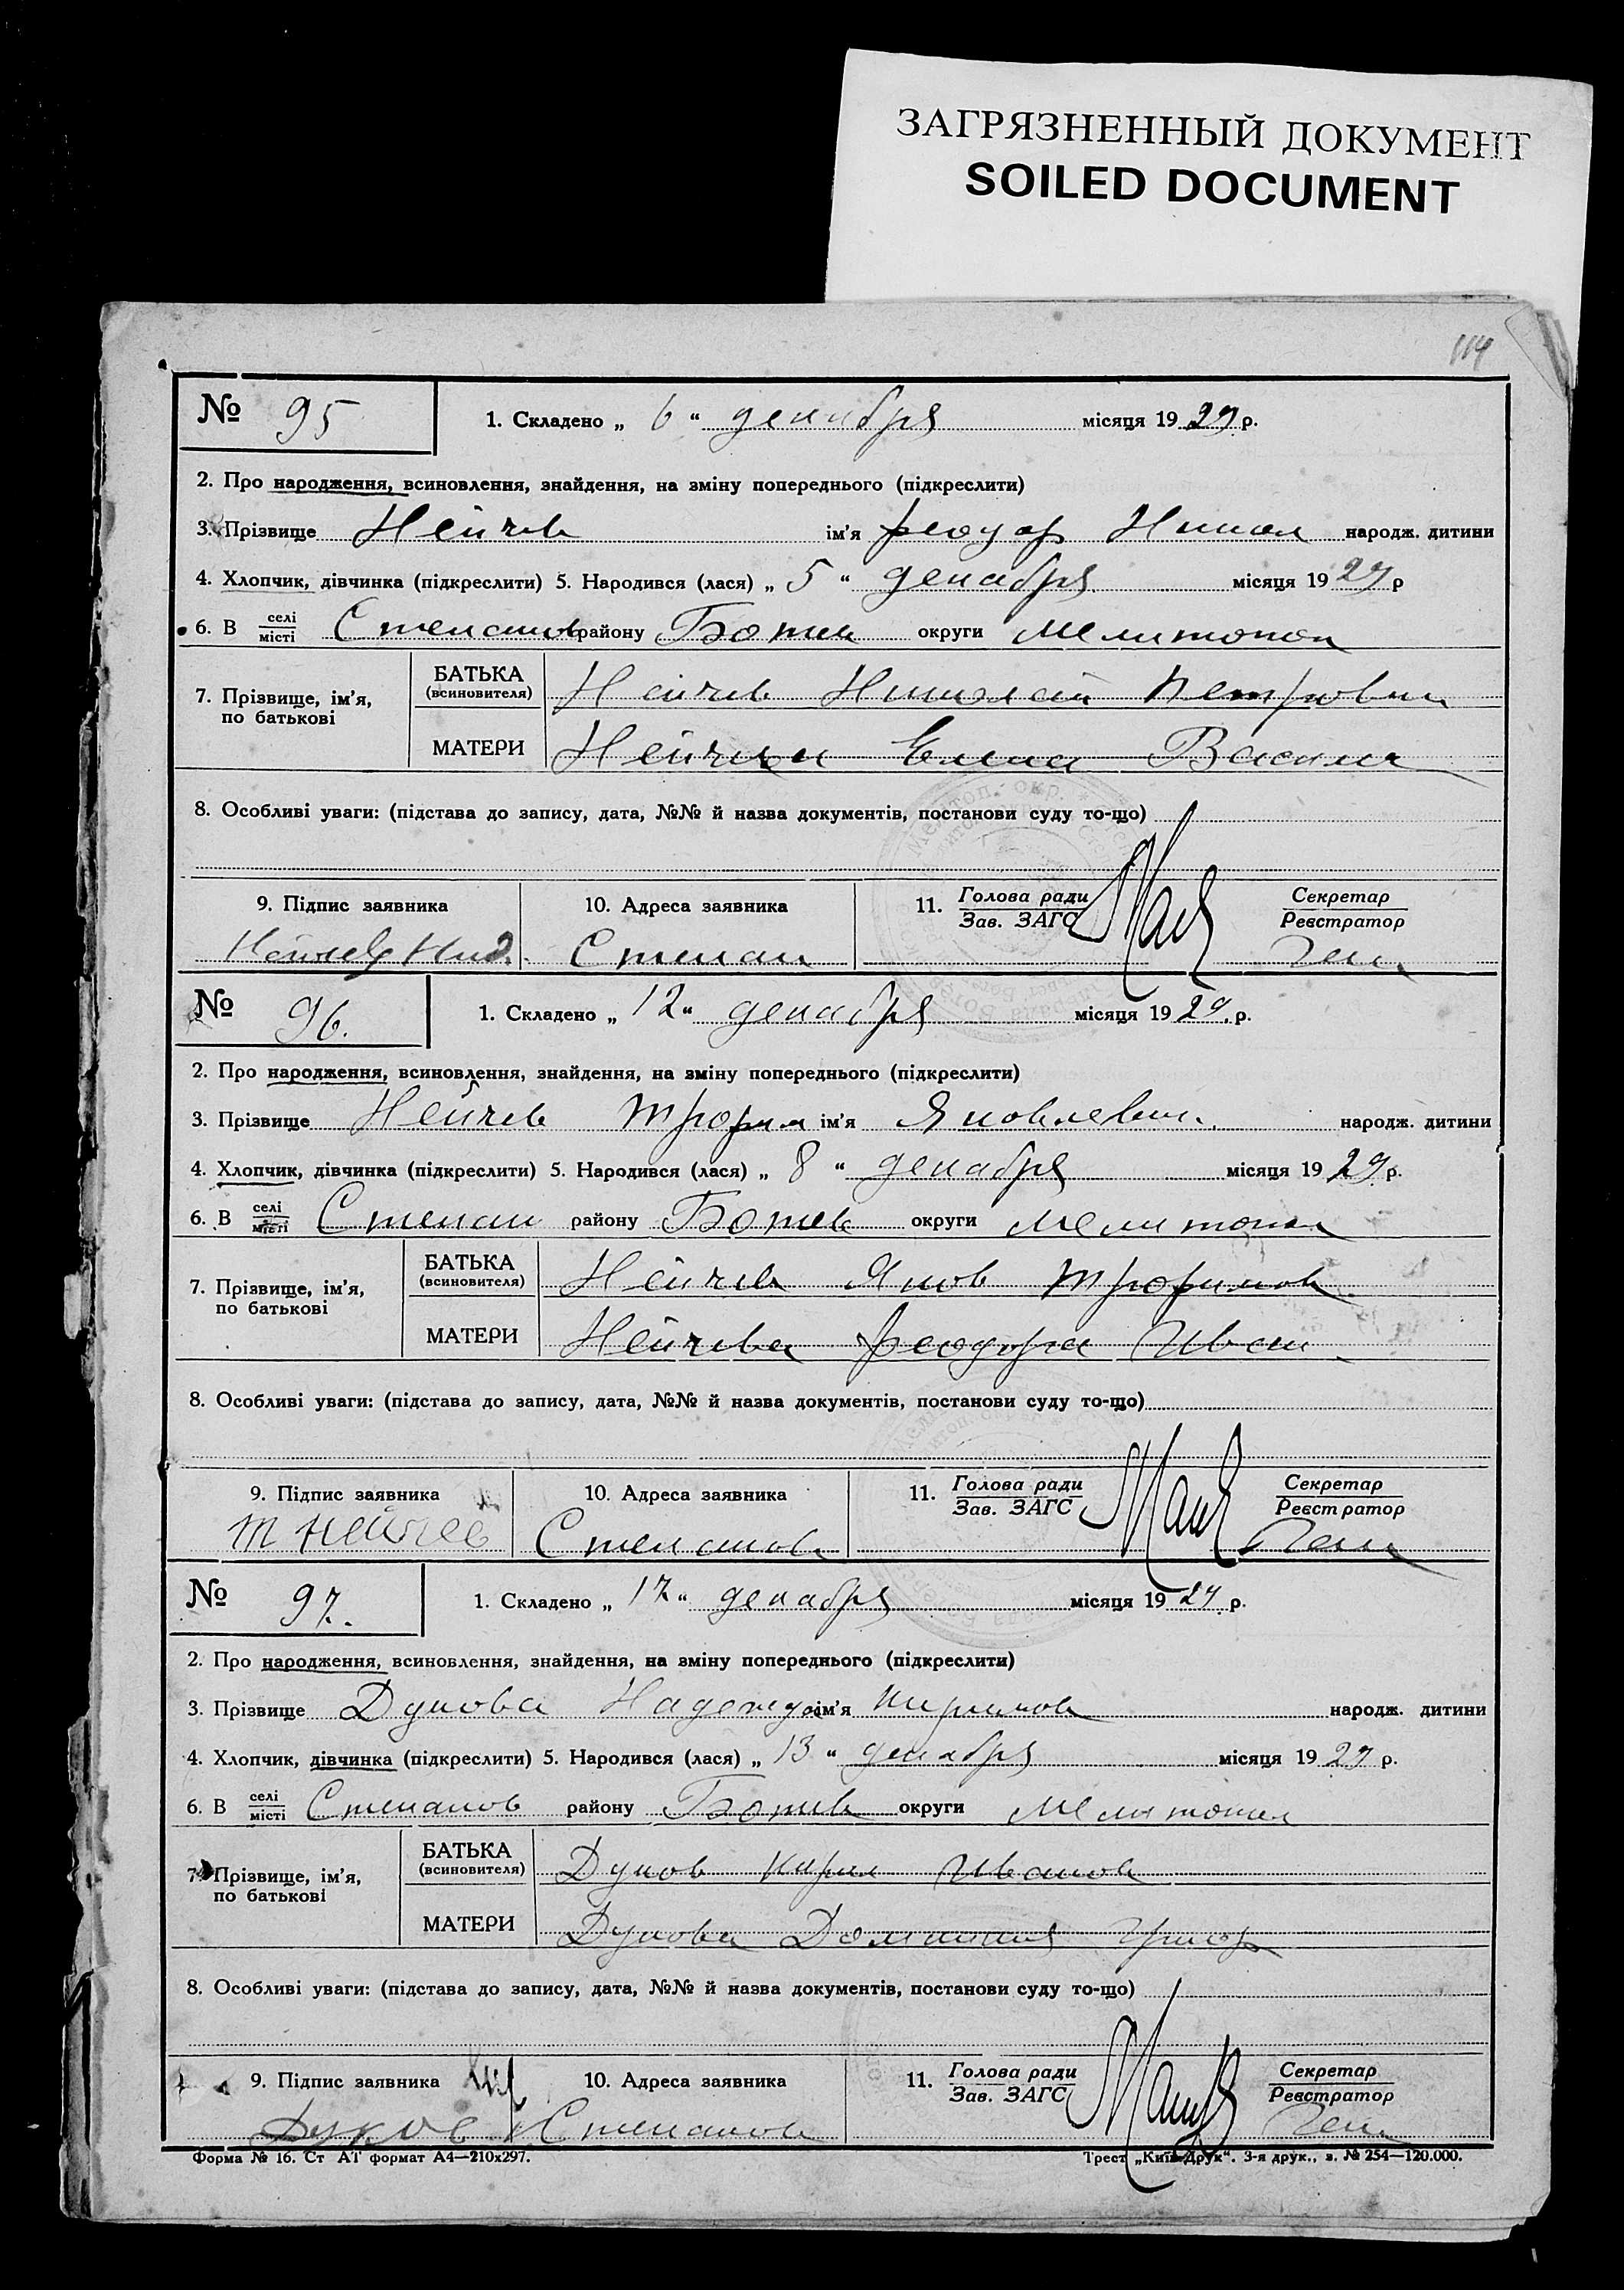 ЗАГРЯЗНЕННЫЙ ДОКУМЕНТ
SOILED DOCUMENT
114
№ 95 1. Складено „ 6 “ декабря місяця 1929 р.
2. Про народження, всиновлення, знайдення, на зміну попереднього (підкреслити)
3. Прізвище Нейчев ім'я Феодор Никол народж. дитини
4. Хлопчик, дівчинка (підкреслити) 5. Народився (лася) „ 5 “ декабря місяця 1929 р
6. В селі/місті Степанов району Ботиев округи Мелитопол
7. Прізвище, ім'я, по батькові
БАТЬКА (всиновителя) Нейчев Николай Петрович
МАТЕРИ Нейчева Елена Васил
8. Особливі уваги: (підстава до запису, дата, №№ й назва документів, постанови суду то-що)
9. Підпис заявника 10. Адреса заявника 11. Голова ради / Зав. ЗАГС Секретар / Реєстратор
Степан
№ 96. 1. Складено „ 12 “ декабря місяця 1929 р.
2. Про народження, всиновлення, знайдення, на зміну попереднього (підкреслити)
3. Прізвище Нейчев Трофим ім'я Яковлевич. народж. дитини
4. Хлопчик, дівчинка (підкреслити) 5. Народився (лася) „ 8 “ декабря місяця 1929 р.
6. В селі/місті Степан району Ботиев округи Мелитопол
7. Прізвище, ім'я, по батькові
БАТЬКА (всиновителя) Нейчев Яков Трофимов
МАТЕРИ Нейчева Феодора Иван
8. Особливі уваги: (підстава до запису, дата, №№ й назва документів, постанови суду то-що)
9. Підпис заявника 10. Адреса заявника 11. Голова ради / Зав. ЗАГС Секретар / Реєстратор
Т Нейчев Степанов
№ 97. 1. Складено „ 17 “ декабря місяця 1929 р.
2. Про народження, всиновлення, знайдення, на зміну попереднього (підкреслити)
3. Прізвище Дукова Надежда ім'я Кирилов народж. дитини
4. Хлопчик, дівчинка (підкреслити) 5. Народився (лася) „ 13 “ декабря місяця 1929 р.
6. В селі/місті Степанов району Ботиев округи Мелитопол
7. Прізвище, ім'я, по батькові
БАТЬКА (всиновителя) Дуков Кирил Иванов
МАТЕРИ Дукова Домникия Григор
8. Особливі уваги: (підстава до запису, дата, №№ й назва документів, постанови суду то-що)
9. Підпис заявника 10. Адреса заявника 11. Голова ради / Зав. ЗАГС Секретар / Реєстратор
Дуков Степанов
Форма № 16. Ст АТ формат А4—210х297. Трест „Київ-Друк“. 3-я друк., з. № 254—120.000.